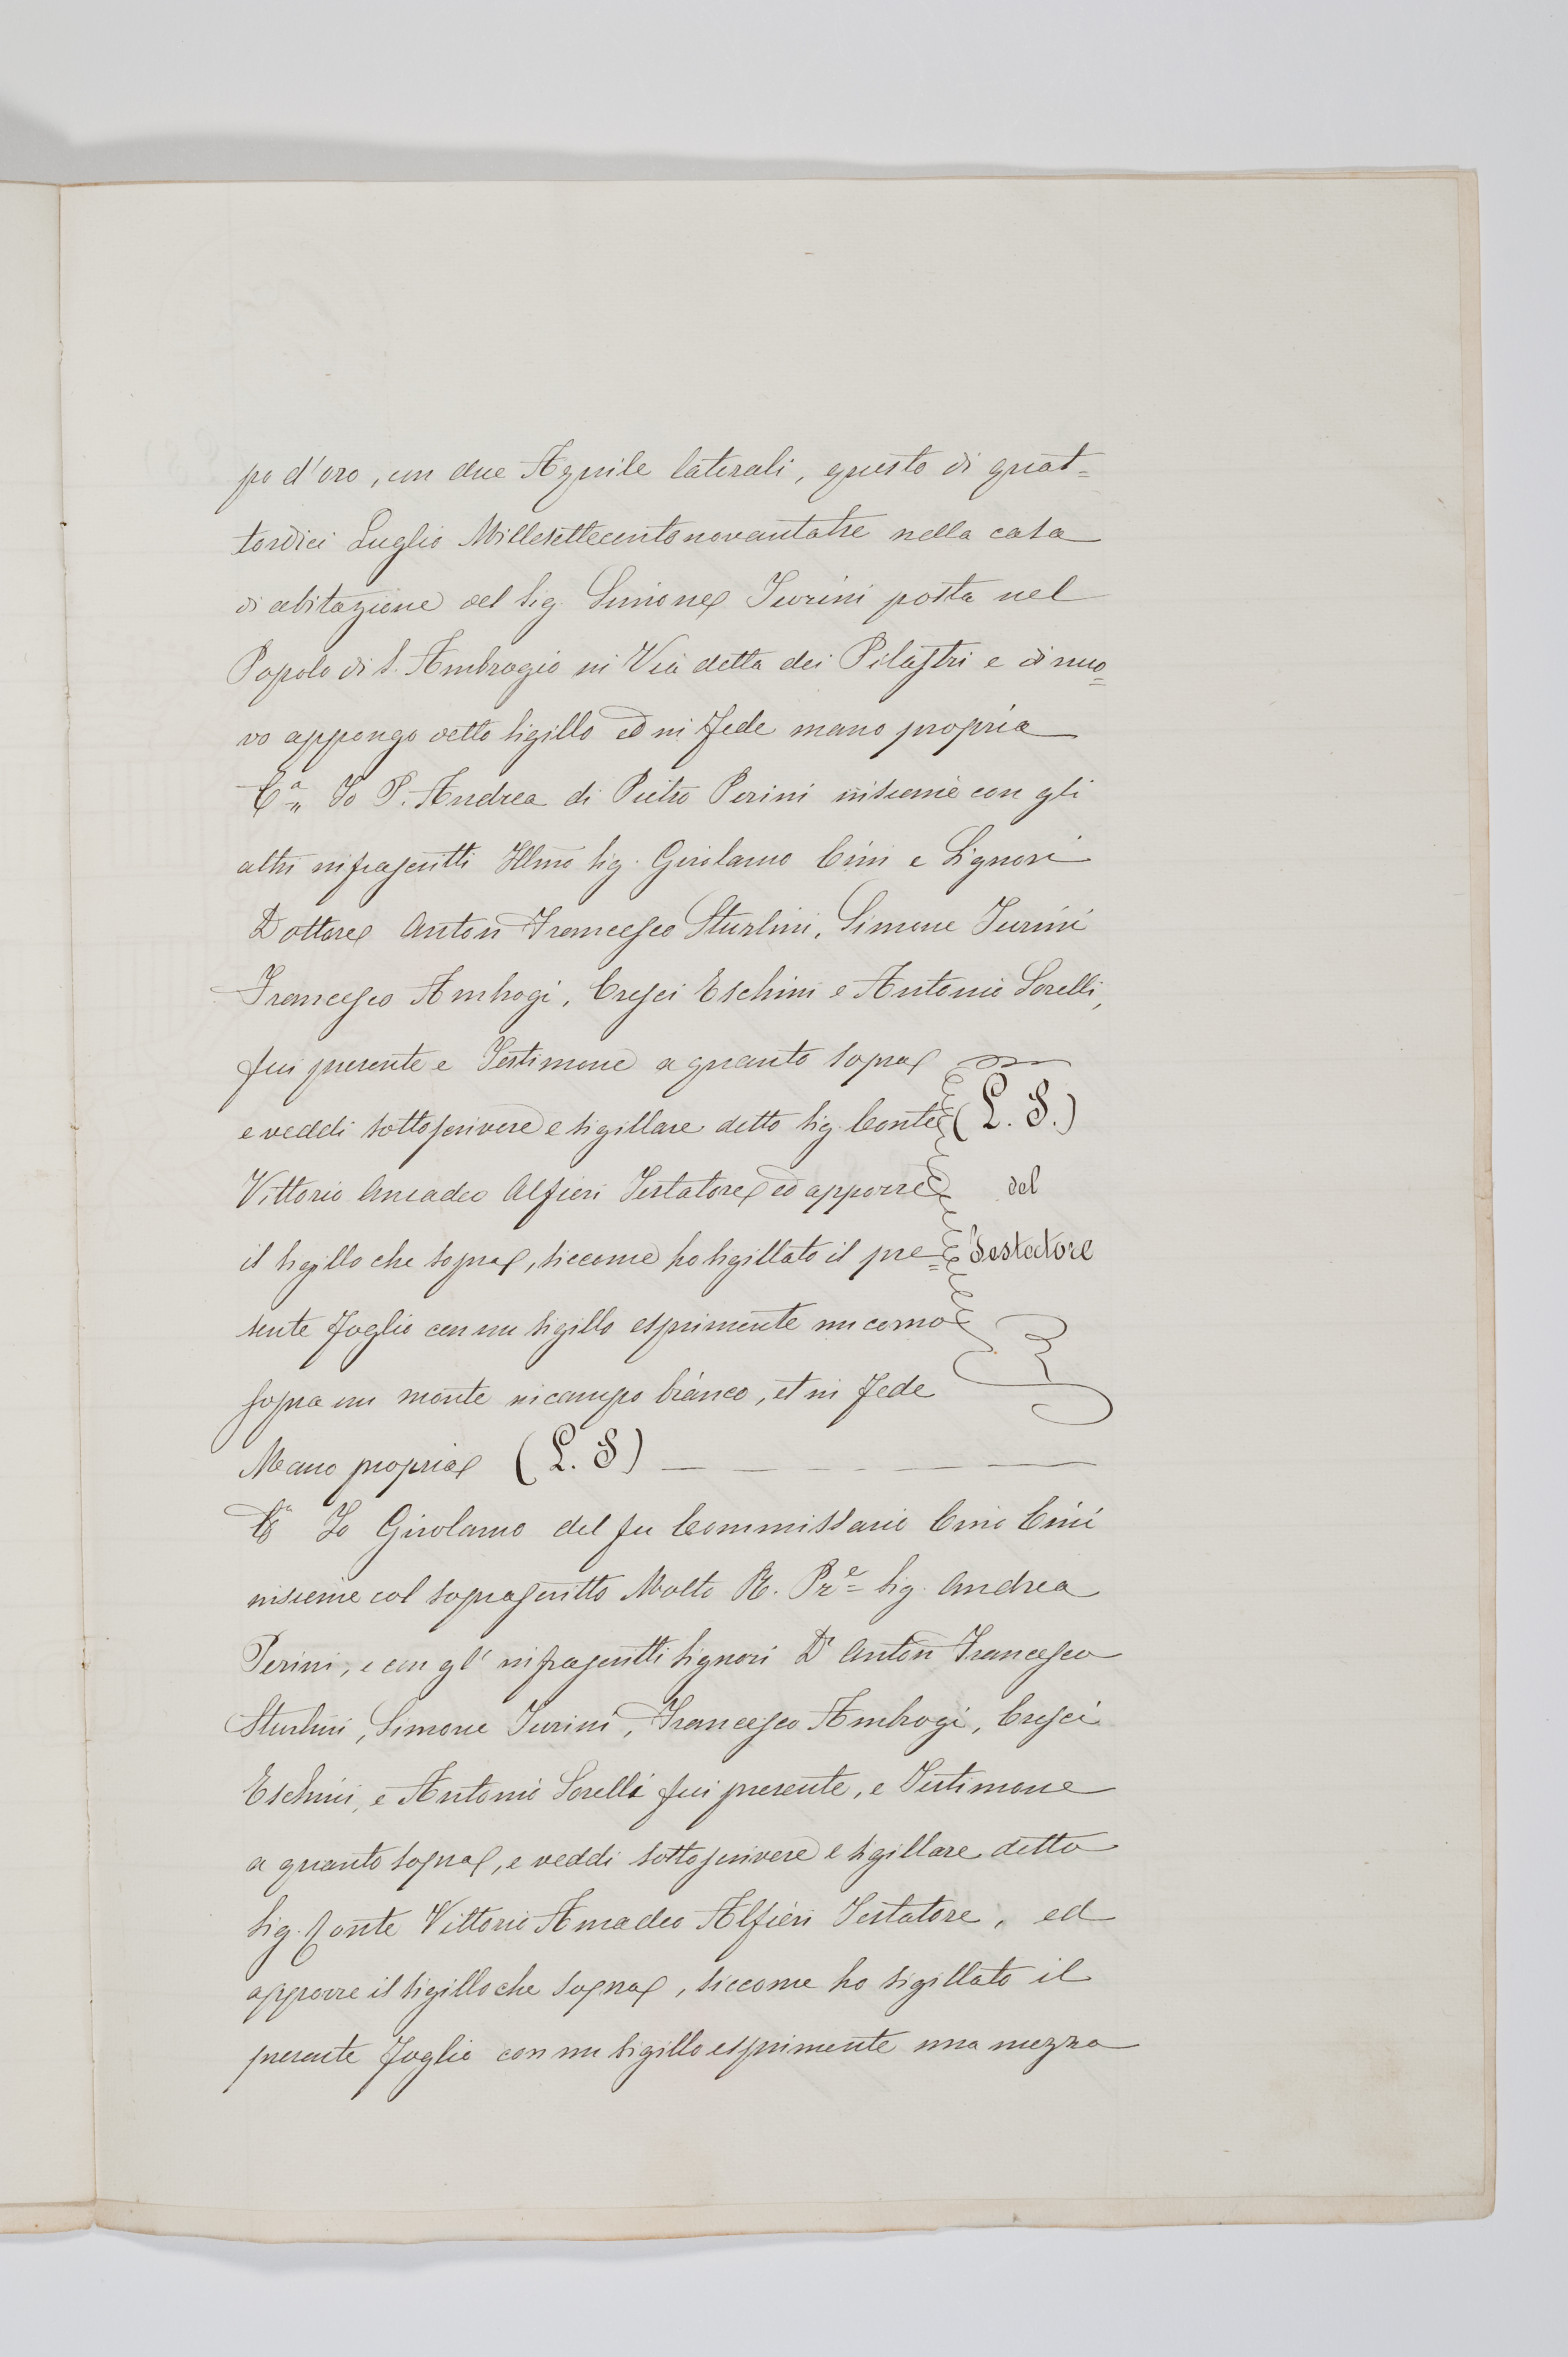 po d'oro, con due Aquile laterali, questo dì quat=
tordici Luglio Millesettecentonovantatre nella casa
di abitazione del Sig. Simone Turini posta nel
Popolo di S. Ambrogio in Via detta dei Pilastri e di nuo=
vo appongo detto sigillo ed in Fede mano propria
C.a Io P. Andrea di Pietro Perini insieme con gli
altri infrascritti Illmo Sig. Girolamo Cini e Signori
Dottore Anton Francesco Sturlini, Simone Turini
Francesco Ambrogi, Cresci Eschini e Antonio Sorelli,
fui presente e Testimone a quanto sopra
e veddi sottoscrivere e sigillare detto Sig. Conte (L. S.)
Vittorio Amadeo Alfieri Testatore ed apporre del
il sigillo che sopra, siccome ho sigillato il pre= Testatore
sente Foglio con un sigillo esprimente un corno
sopra un monte in campo bianco, et in Fede
Mano propria (L. S)
C.a Io Girolamo del fu Commissario Cino Cini
insieme col soprascritto Molto R. Pr.e Sig. Andrea
Perini, e con gl' infrascritti Signori D.r Anton Francesco
Sturlini, Simone Turini, Francesco Ambrogi, Cresci
Eschini, e Antonio Sorelli fui presente, e Testimone
a quanto sopra, e veddi sottoscrivere e sigillare detto
Sig. Conte Vittorio Amadeo Alfieri Testatore, ed
apporre il sigillo che sopra, siccome ho sigillato il
presente Foglio con un sigillo esprimente una mezza